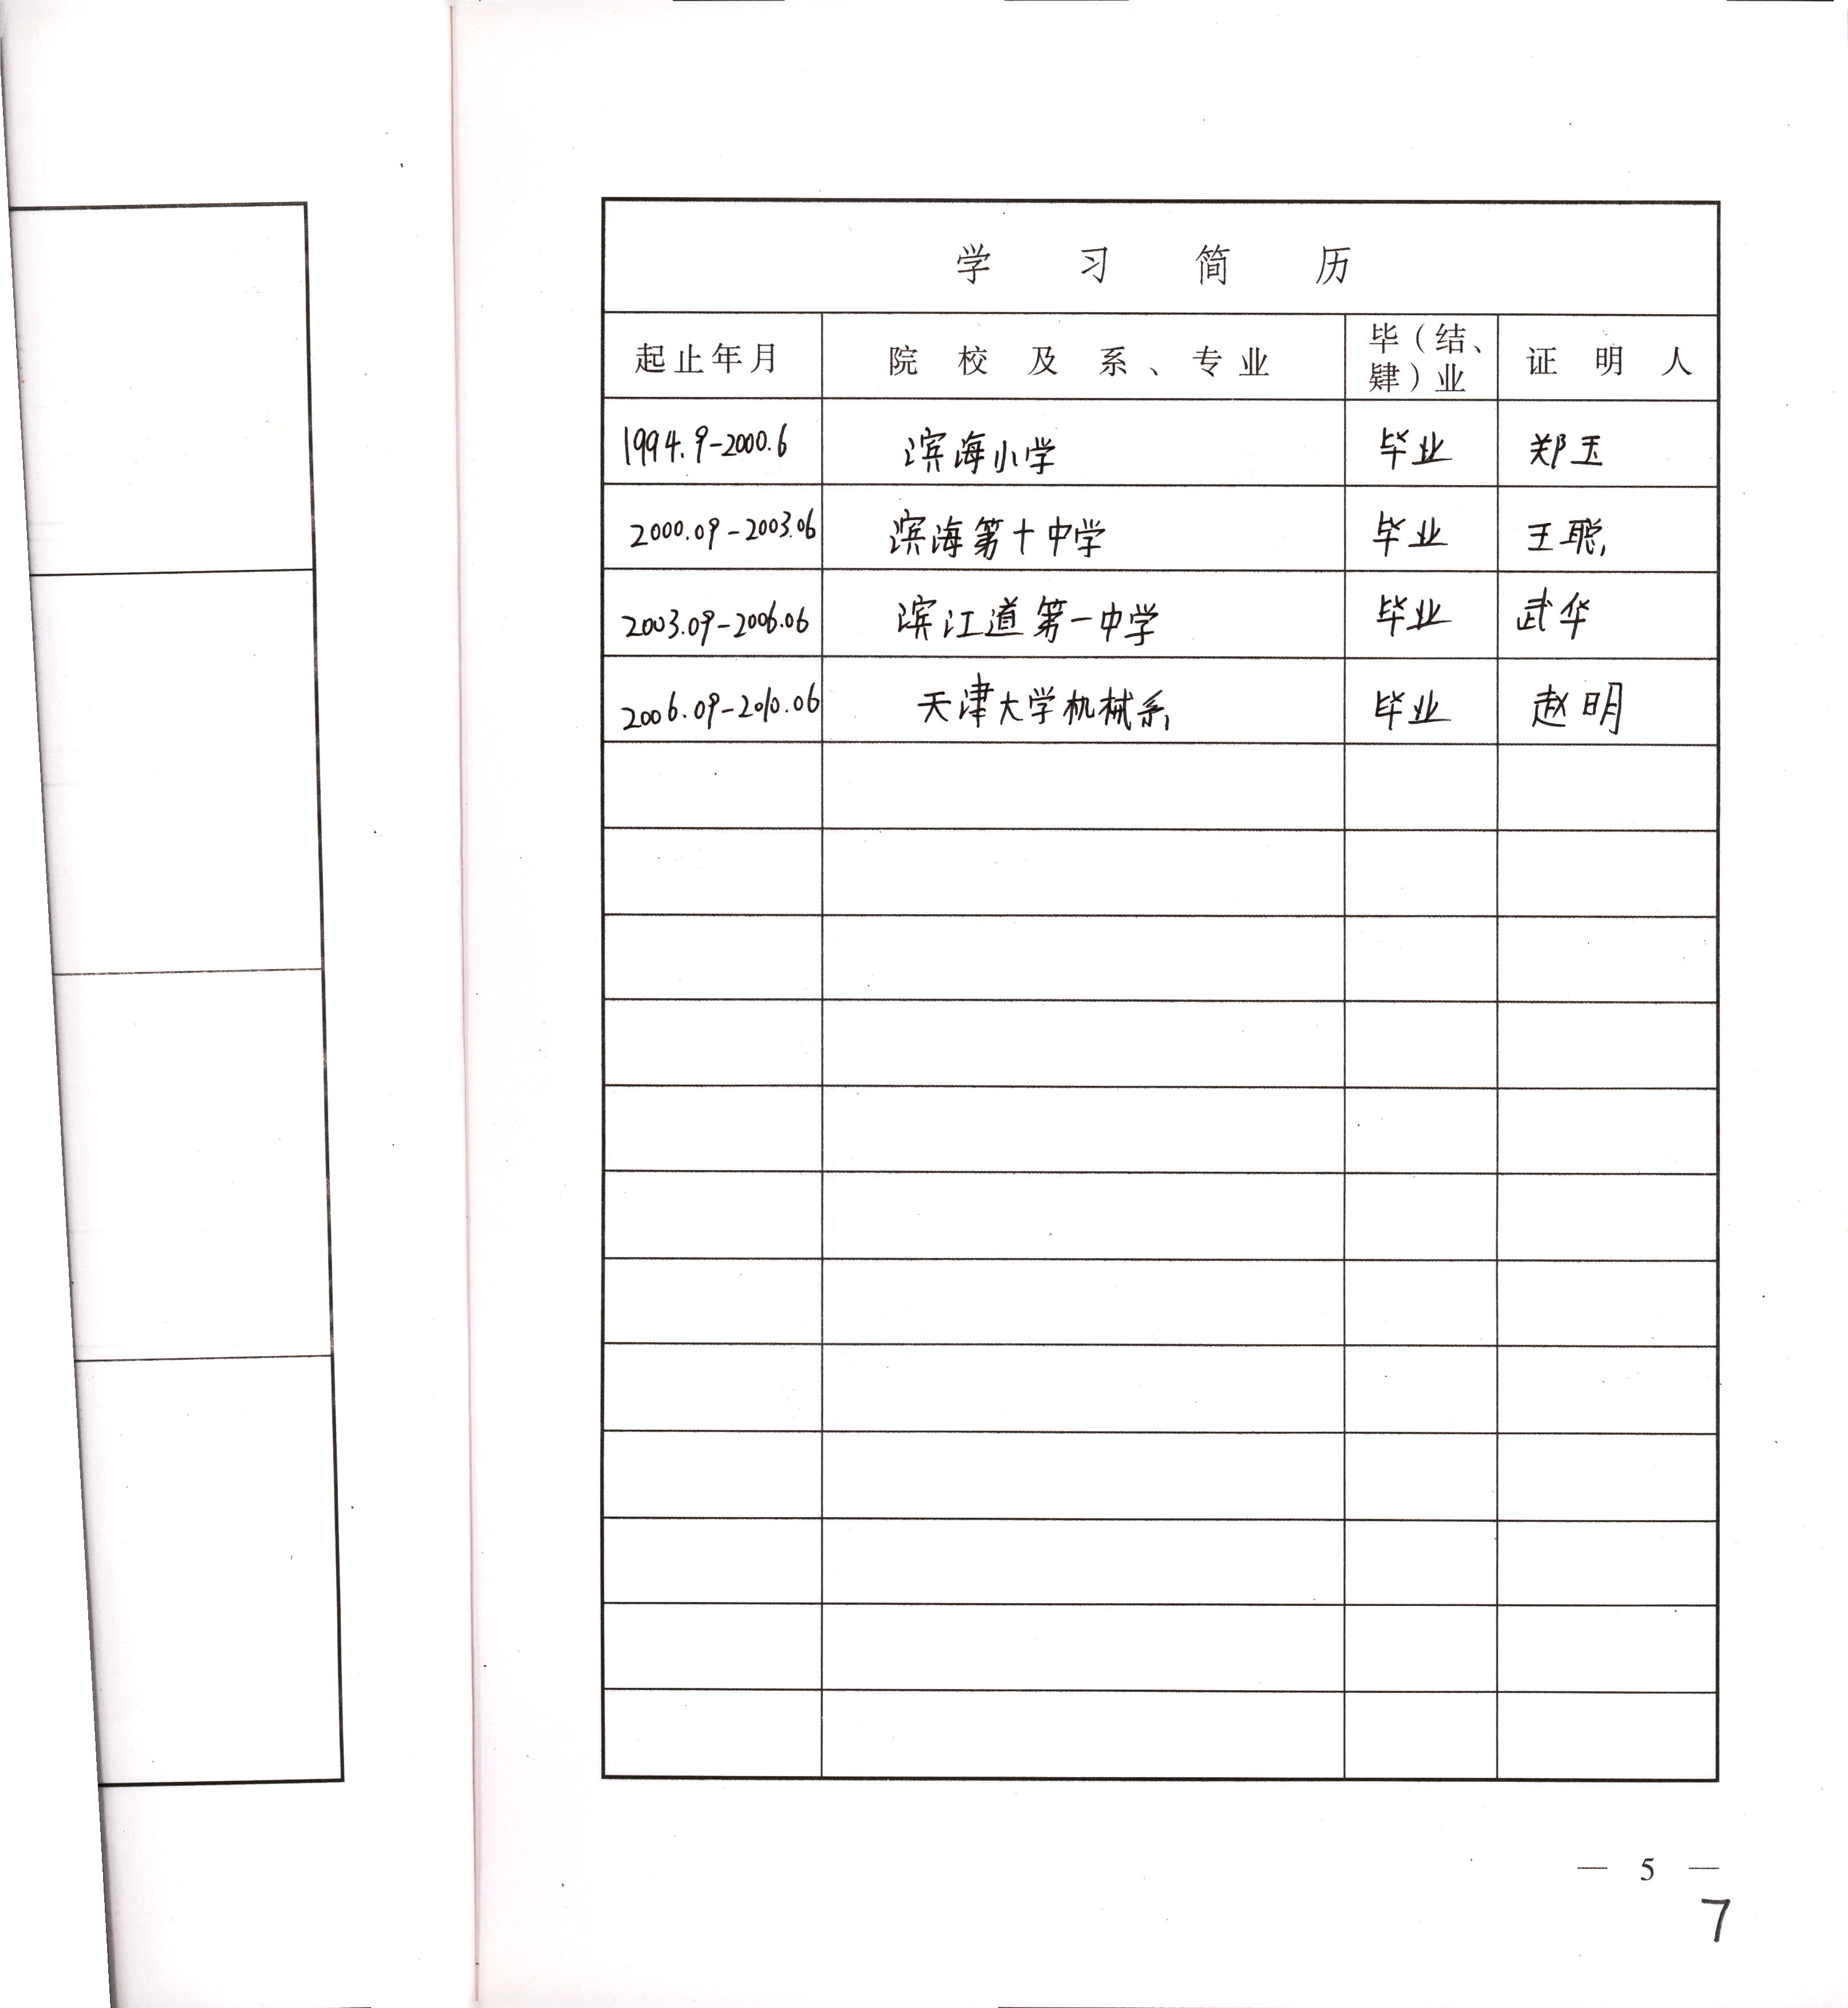 学 习 简 历
起止年月 院 校 及 系、专业 毕（结、肄）业 证 明 人
1994.9-2000.6 滨海小学 毕业 郑玉
2000.09-2003.06 滨海第十中学 毕业 王聪
2003.09-2006.06 滨江道第一中学 毕业 武华
2006.09-2010.06 天津大学机械系 毕业 赵明
— 5 —
7